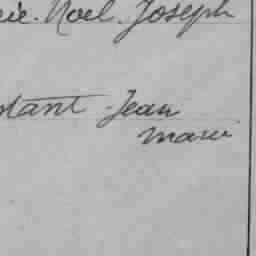 rie. Noel. Joseph
stant Jean
marie